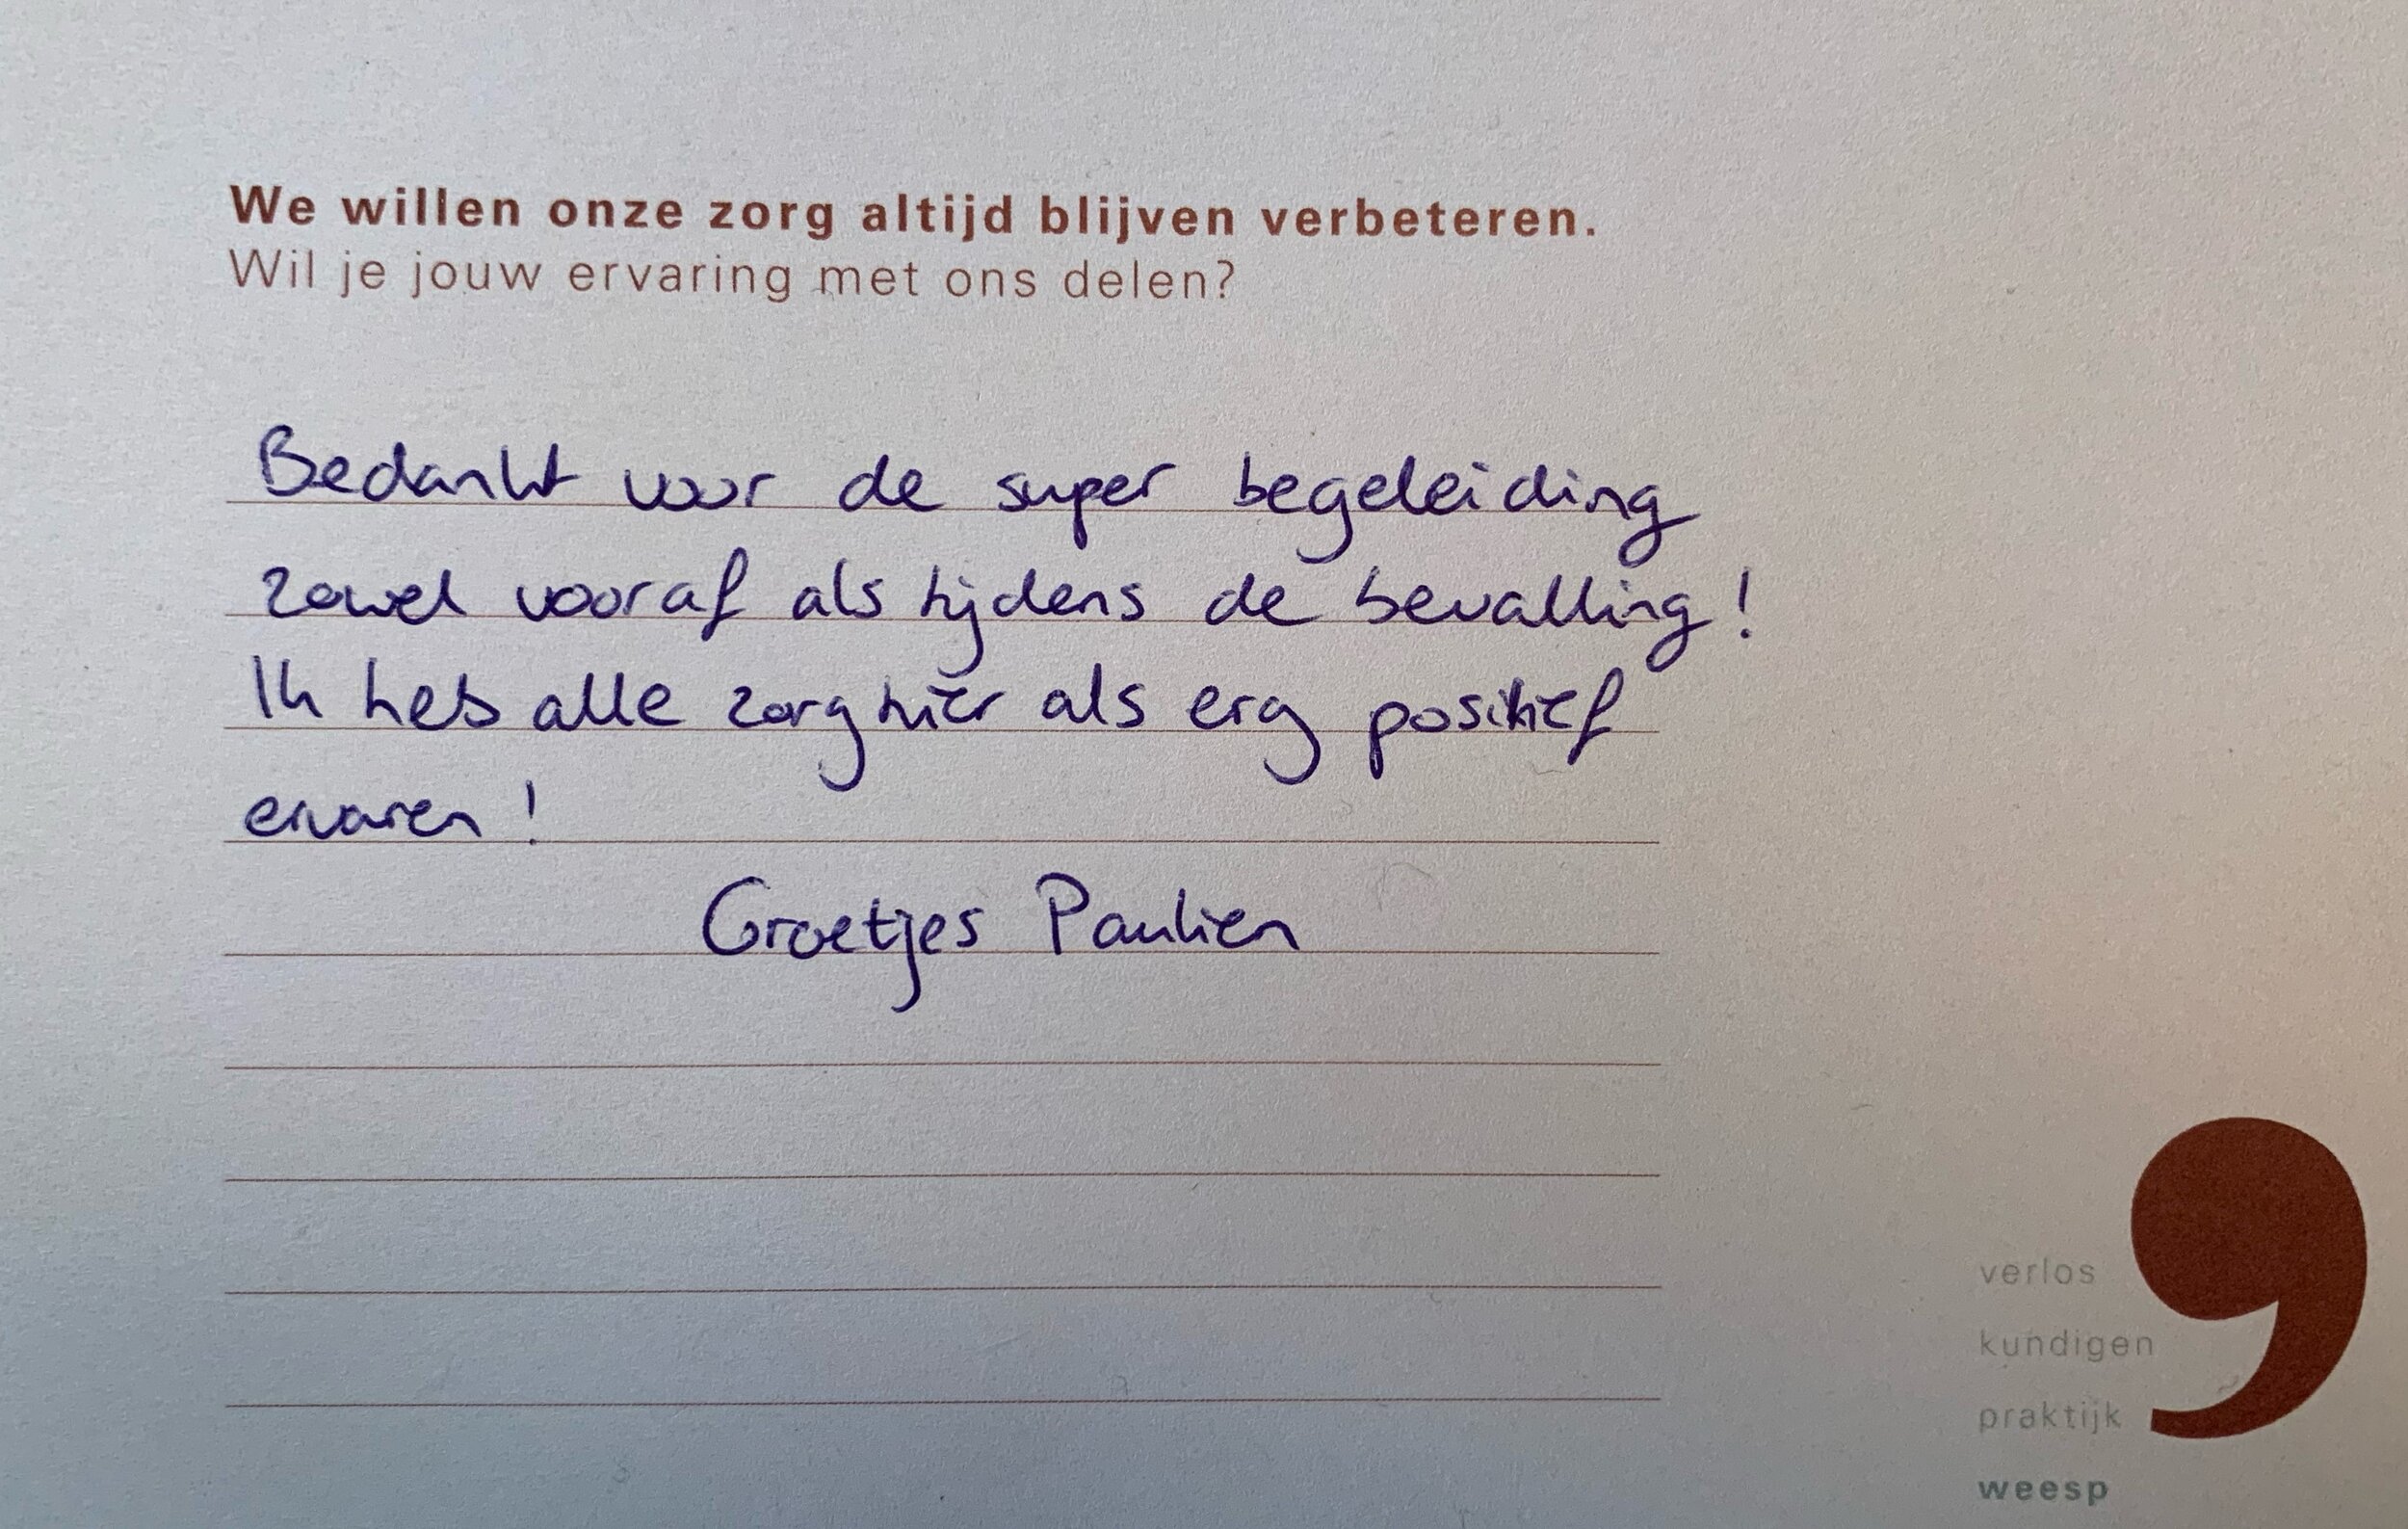 We willen onze zorg altijd blijven verbeteren.
Wil je jouw ervaring met ons delen?
Bedankt voor de super begeleiding
zowel vooraf als tijdens de bevalling!
Ik heb alle zorg hier als erg positief
ervaren!
Groetjes Paulien
verlos
kundigen
praktijk
weesp